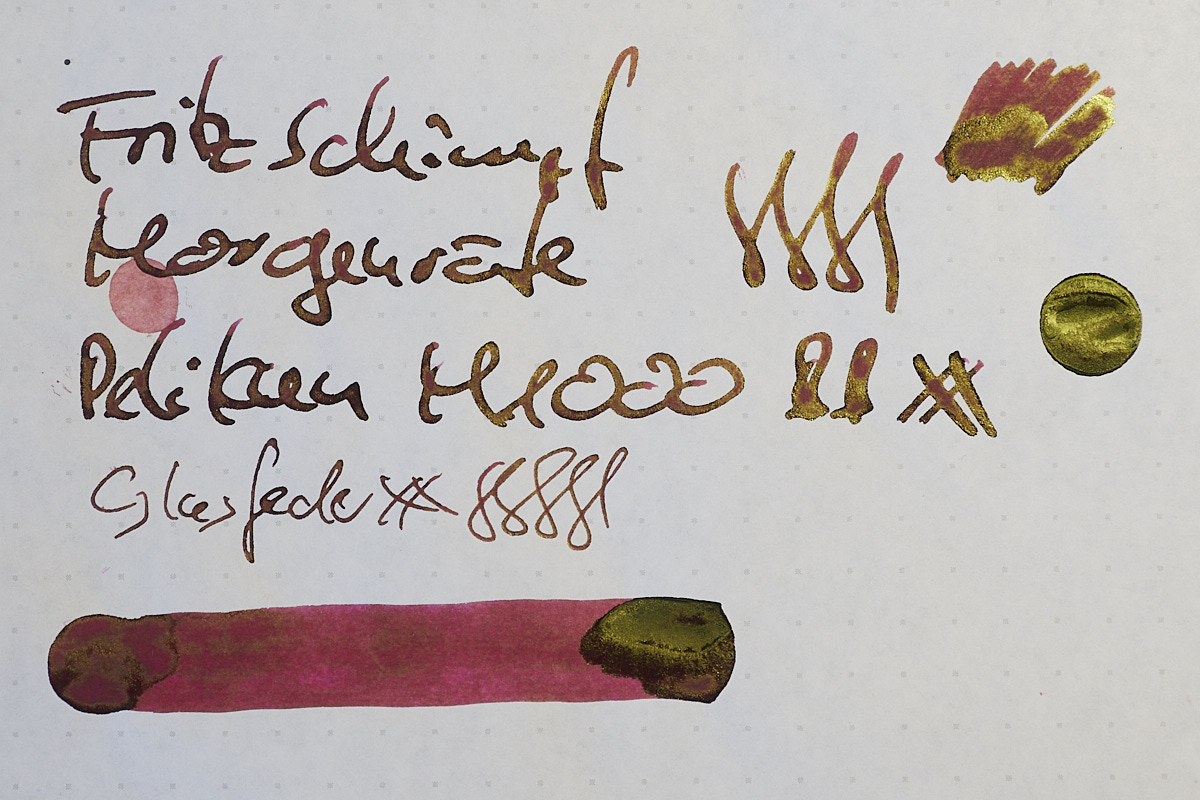 Fritz Schimpf
Morgenröte
Pelikan M1000
Glasfeder